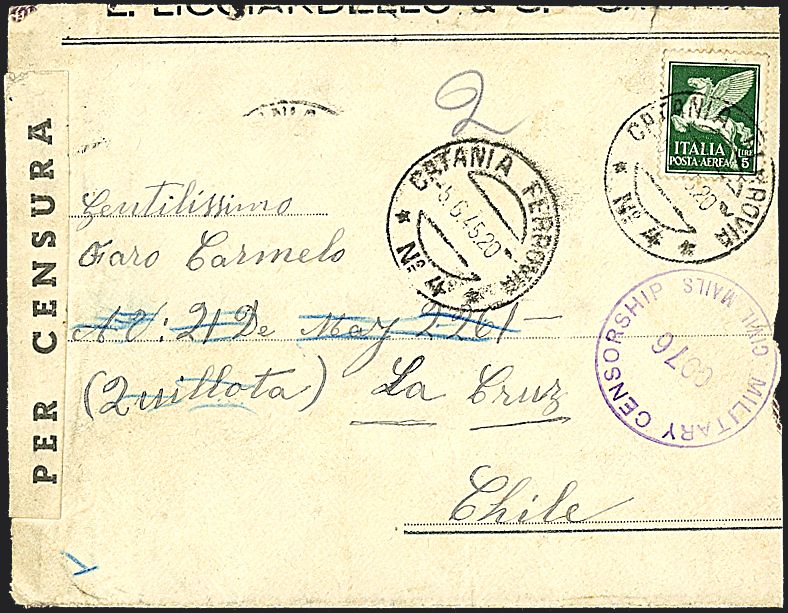 L. LICCIARDELLO &
2
ITALIA
LIRE
POSTA-AEREA 5
CATANIA FERROVIA
Nº 4
CATANIA FERROVIA
-5.6.45.20
Nº 4
PER CENSURA
Gentilissimo
Faro Carmelo
AV: 21 De May 2261-
(Quillota) La Cruz
Chile
MILITARY CENSORSHIP CIVIL MAILS
0076